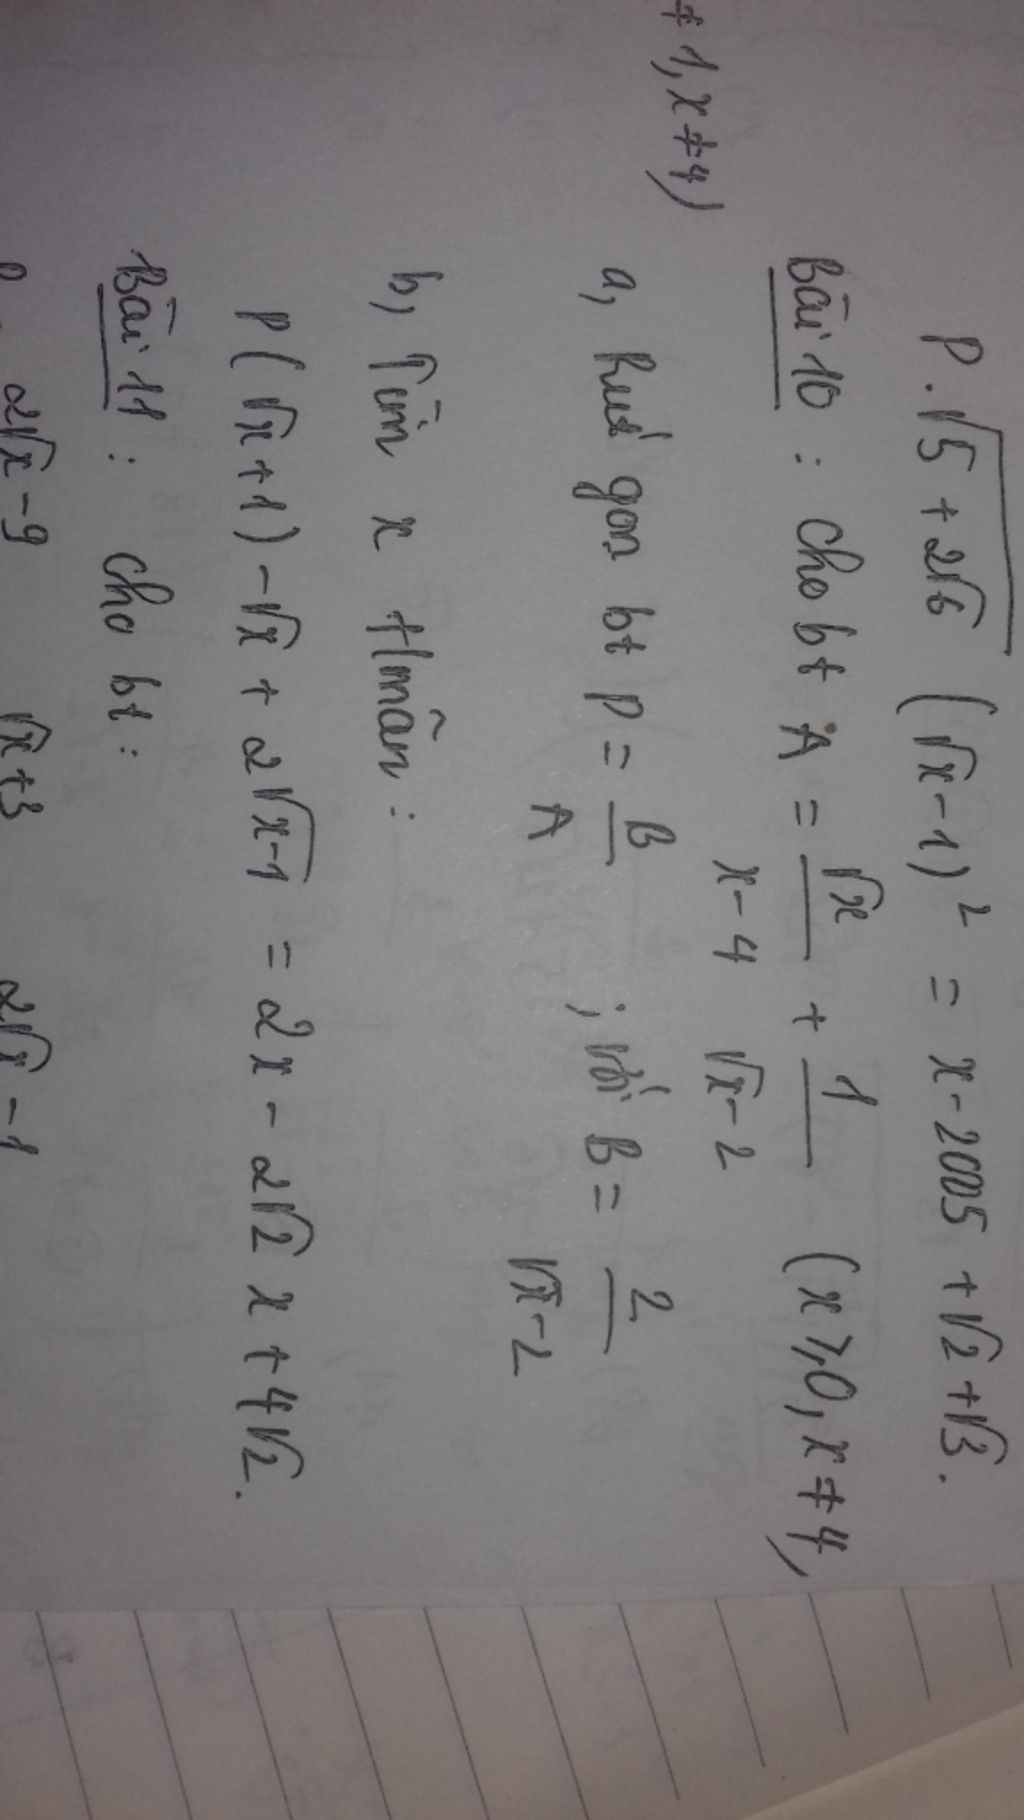 P.√(5 + 2√6) (√x - 1)² = x - 2005 + √2 + √3.
≠ 1, x ≠ 4)
Bài 10 : cho bt A = √x/(x - 4) + 1/(√x - 2) (x ≥ 0, x ≠ 4,
a, Rút gọn bt P = B/A ; với B = 2/(√x - 2)
b, Tìm x t/mãn :
P(√x + 1) - √x + 2√(x-1) = 2x - 2√2 x + 4√2.
Bài 11 : cho bt :
2√x - 9 √x + 3 2√x - 1